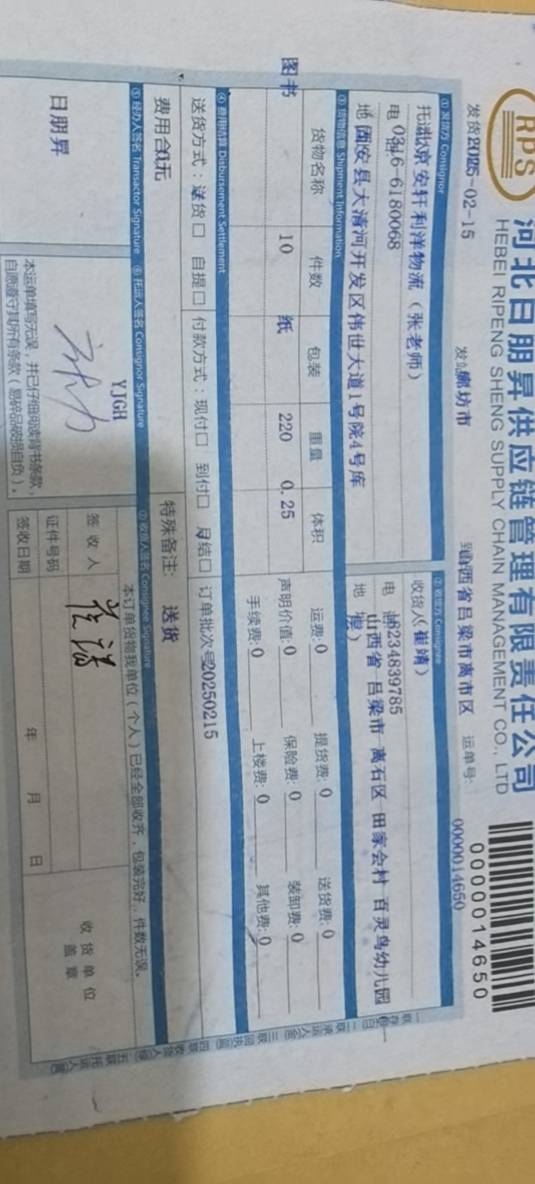 RPS
河北日朋昇供应链管理有限责任公司
HEBEI RIPENG SHENG SUPPLY CHAIN MANAGEMENT CO., LTD
0000014650
发货2025-02-15
发站廊坊市
到山西省吕梁市离市区
运单号:
0000014650
① 发货方 Consignor
② 收货方 Consignee
托运北京安轩利洋物流（张老师）
收货人（崔靖）
电0316-6180068
电 18234839785
地固安县大清河开发区伟世大道1号院4号库
地 山西省 吕梁市 离石区 田家会村 百灵鸟幼儿园
③ 货物信息 Shipment Information
货物名称 件数 包装 重量 体积
运费: 0 提货费: 0 送货费: 0
图书 10 纸 220 0.25
声明价值: 0 保险费: 0 装卸费: 0
手续费: 0 上楼费: 0 其他费: 0
④ 费用结算 Disbursement Settlement
送货方式：送货□ 自提□ 付款方式：现付□ 到付□ 月结□ 订单批次号20250215
费用合0元
特殊备注: 送货
⑤ 经办人签名 Transactor Signature
⑥ 托运人签名 Consignor Signature
⑦ 收货人签名 Consignee Signature
日朋昇
YJGH
本运单填写无误，并已仔细阅读背书条款，
自愿遵守其所有条款（易碎品破损自负）。
本订单货物我单位（个人）已经全部收齐，包装完好，件数无误。
签收人
证件号码
签收日期 年 月 日
收货单位
盖章